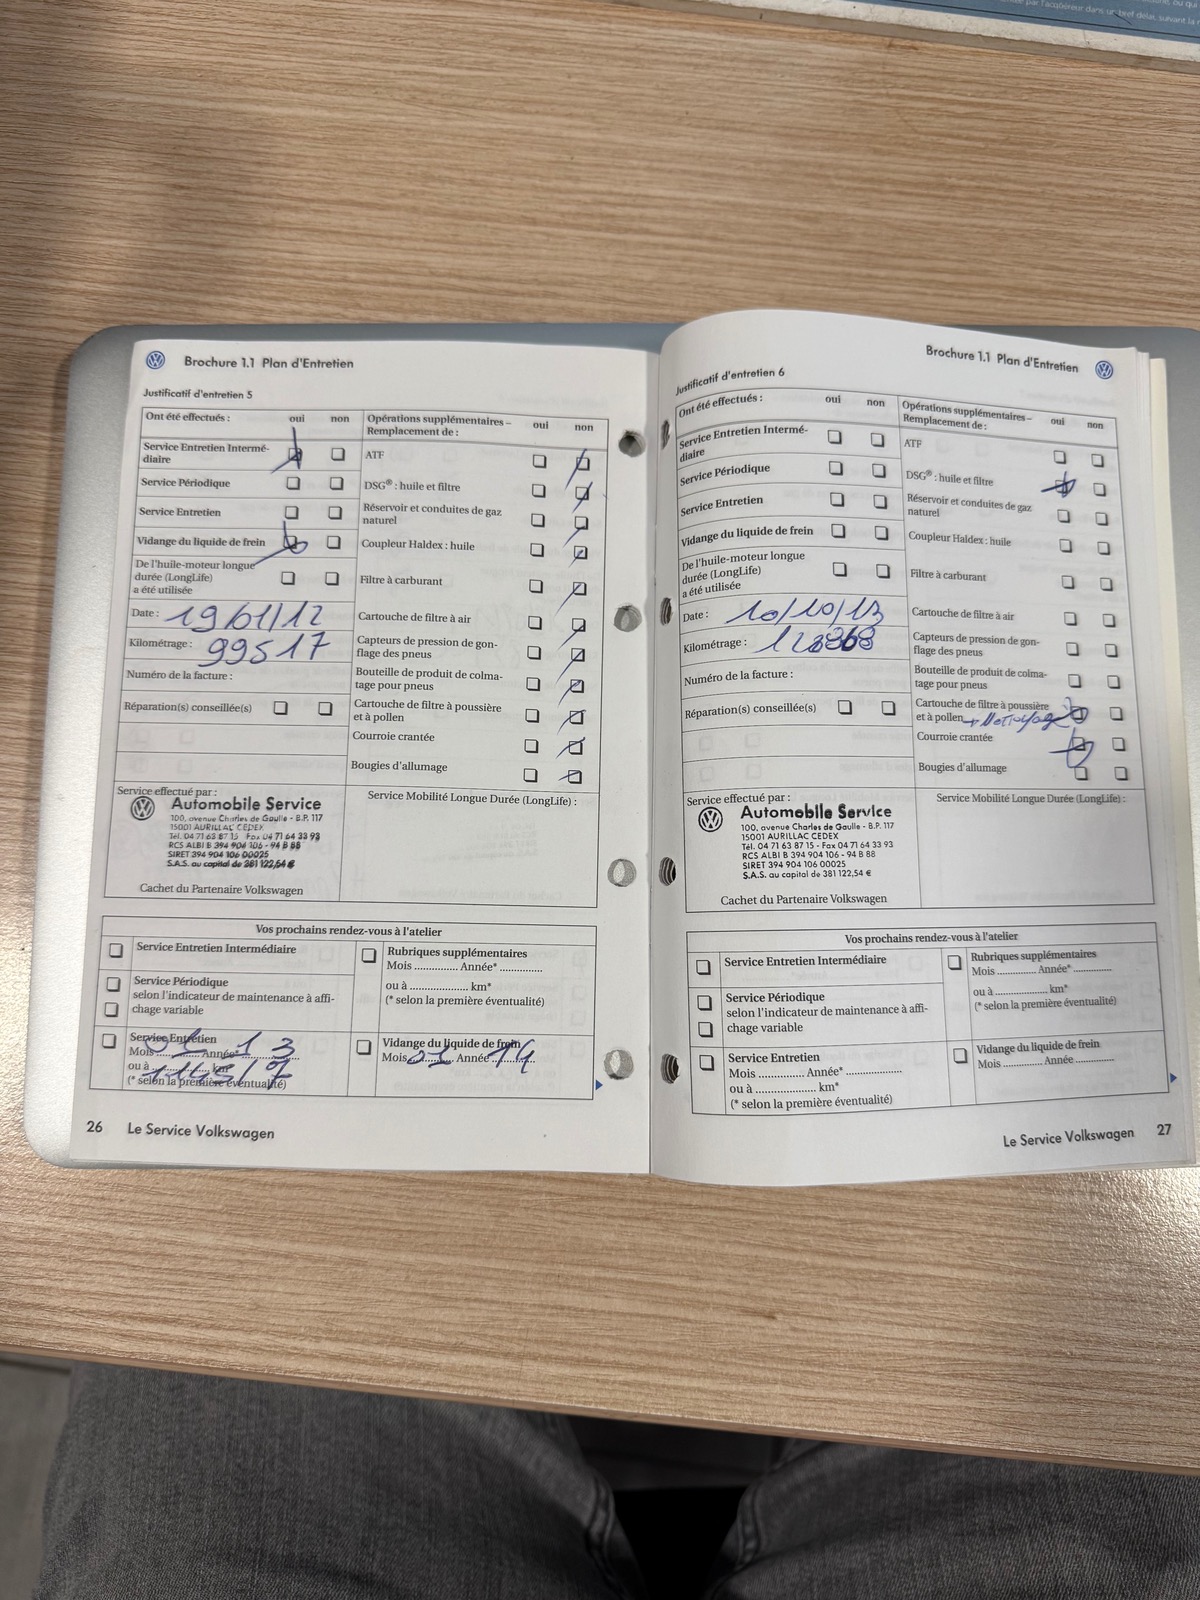 Brochure 1.1 Plan d'Entretien
Justificatif d'entretien 5
Ont été effectués : oui non
Service Entretien Intermé-
diaire
Service Périodique
Service Entretien
Vidange du liquide de frein
De l'huile-moteur longue
durée (LongLife)
a été utilisée
Date : 19/01/12
Kilométrage : 99517
Numéro de la facture :
Réparation(s) conseillée(s)
Opérations supplémentaires – oui non
Remplacement de :
ATF
DSG® : huile et filtre
Réservoir et conduites de gaz
naturel
Coupleur Haldex : huile
Filtre à carburant
Cartouche de filtre à air
Capteurs de pression de gon-
flage des pneus
Bouteille de produit de colma-
tage pour pneus
Cartouche de filtre à poussière
et à pollen
Courroie crantée
Bougies d'allumage
Service effectué par :
Automobile Service
100, avenue Charles de Gaulle - B.P. 117
15001 AURILLAC CEDEX
Tél. 04 71 63 87 15 Fax 04 71 64 33 93
RCS ALBI B 394 904 106 - 94 B 88
SIRET 394 904 106 00025
S.A.S. au capital de 381 122,54 €
Cachet du Partenaire Volkswagen
Service Mobilité Longue Durée (LongLife) :
Vos prochains rendez-vous à l'atelier
Service Entretien Intermédiaire
Service Périodique
selon l'indicateur de maintenance à affi-
chage variable
Service Entretien
Mois 01 Année* 13
ou à km*
(* selon la première éventualité)
Rubriques supplémentaires
Mois ............... Année* ...............
ou à .................... km*
(* selon la première éventualité)
Vidange du liquide de frein
Mois 01 Année 14
26 Le Service Volkswagen
Brochure 1.1 Plan d'Entretien
Justificatif d'entretien 6
Ont été effectués : oui non
Service Entretien Intermé-
diaire
Service Périodique
Service Entretien
Vidange du liquide de frein
De l'huile-moteur longue
durée (LongLife)
a été utilisée
Date : 10/10/13
Kilométrage :
Numéro de la facture :
Réparation(s) conseillée(s)
Opérations supplémentaires – oui non
Remplacement de :
ATF
DSG® : huile et filtre
Réservoir et conduites de gaz
naturel
Coupleur Haldex : huile
Filtre à carburant
Cartouche de filtre à air
Capteurs de pression de gon-
flage des pneus
Bouteille de produit de colma-
tage pour pneus
Cartouche de filtre à poussière
et à pollen + Nettoyage
Courroie crantée
Bougies d'allumage
Service effectué par :
Automobile Service
100, avenue Charles de Gaulle - B.P. 117
15001 AURILLAC CEDEX
Tél. 04 71 63 87 15 - Fax 04 71 64 33 93
RCS ALBI B 394 904 106 - 94 B 88
SIRET 394 904 106 00025
S.A.S. au capital de 381 122,54 €
Cachet du Partenaire Volkswagen
Service Mobilité Longue Durée (LongLife) :
Vos prochains rendez-vous à l'atelier
Service Entretien Intermédiaire
Service Périodique
selon l'indicateur de maintenance à affi-
chage variable
Service Entretien
Mois ............... Année* ...............
ou à .................... km*
(* selon la première éventualité)
Rubriques supplémentaires
Mois ............... Année* ...............
ou à .................... km*
(* selon la première éventualité)
Vidange du liquide de frein
Mois ............... Année ...............
Le Service Volkswagen 27